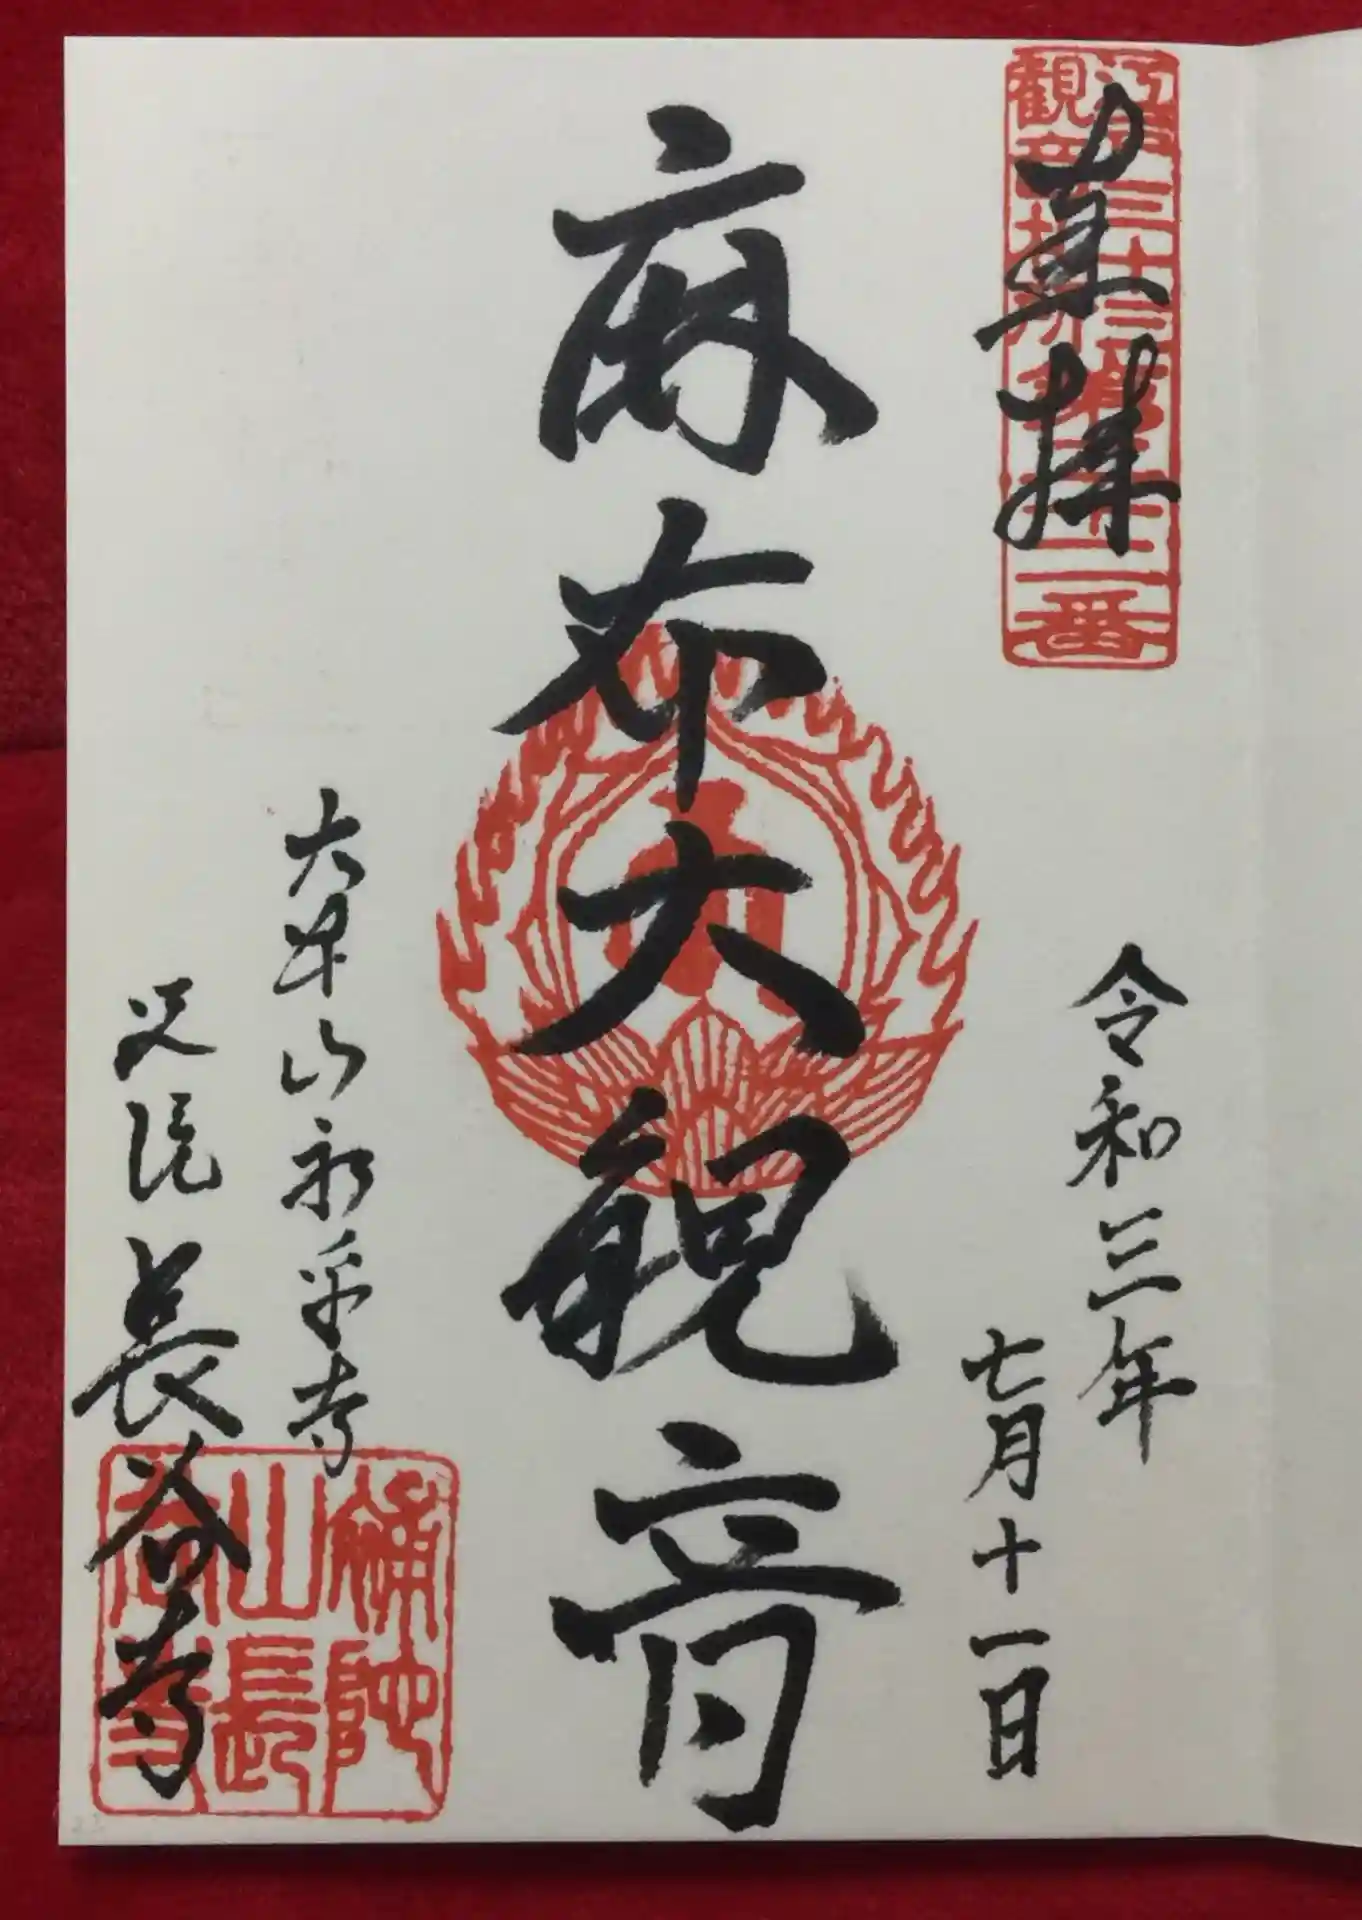 奉拝
江戸三十三
観音札所第二十二番
令和三年
七月十一日
麻布大観音
大本山永平寺
別院長谷寺
補陀
山長
谷寺